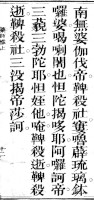 南無薄伽伐帝鞞殺社窶嚕薜琉璃鉢
囉婆喝囉闍也怛陀揭多耶阿囉訶帝
三藐三勃陀耶怛姪他唵鞞殺逝鞞殺
逝鞞殺社三沒揭帝莎訶